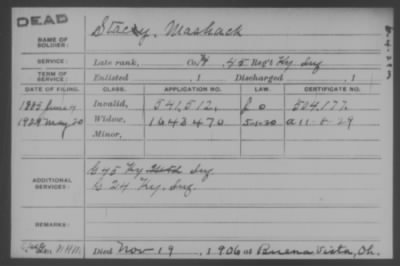 DEAD
NAME OF SOLDIER: Stacy, Mashack
SERVICE: Late rank, Co. 45 Reg't Ky Inf
TERM OF SERVICE: Enlisted , 1 Discharged , 1
DATE OF FILING. CLASS. APPLICATION NO. LAW. CERTIFICATE NO.
1885 June 4 Invalid, 541,512, 504,177.
1929 May 20 Widow, 1643470 5-1-20 a 11-8-29
Minor,
ADDITIONAL SERVICES: G 45 Ky Inf
C 24 Ky. Inf.
REMARKS:
Died Nov 19 , 1906 at Buena Vista, Oh.